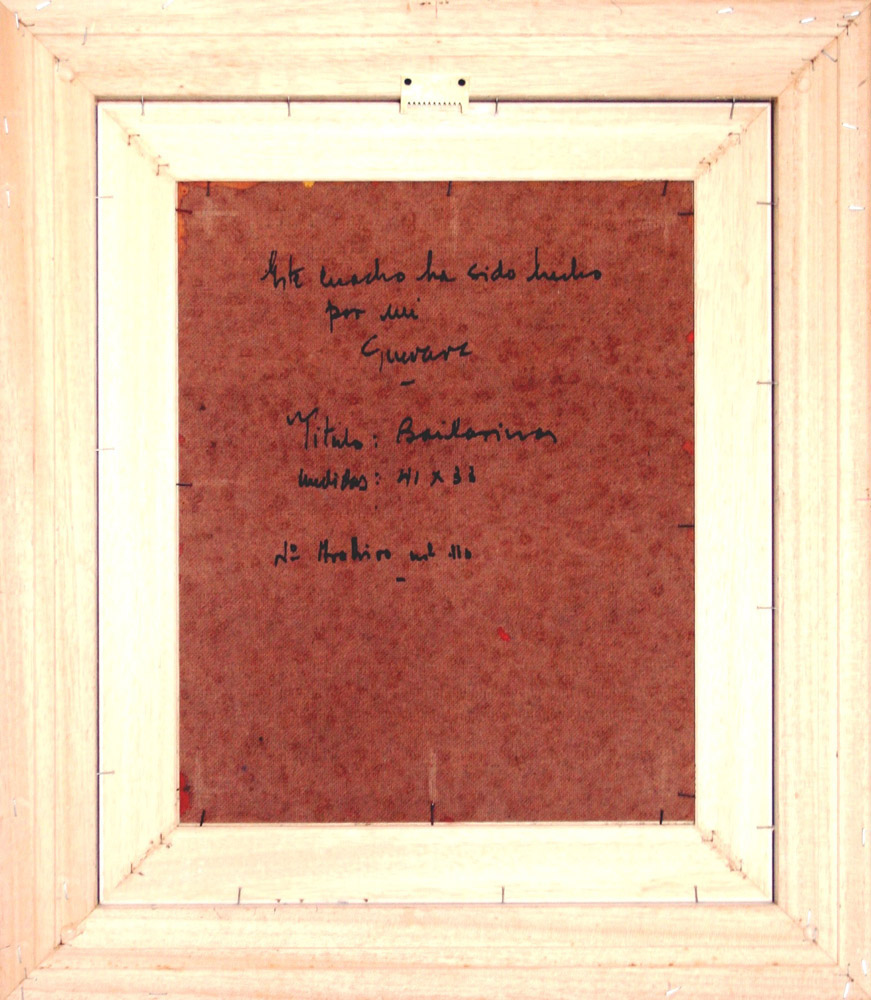 Este cuadro ha sido hecho
por mi
Guevara
Titulo: Bailarinas
medidas: 41 x 33
Nº Archivo